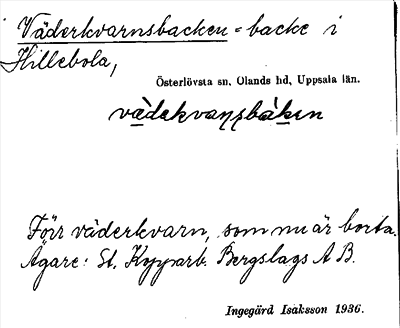 Väderkvarnsbacken = backe i
Hillebola,
Österlövsta sn, Olands hd, Uppsala län.
vä̀dekvaɳʂbàken
Förr väderkvarn, som nu är borta.
Ägare: St. Kopparb. Bergslags A B.
Ingegärd Isaksson 1936.